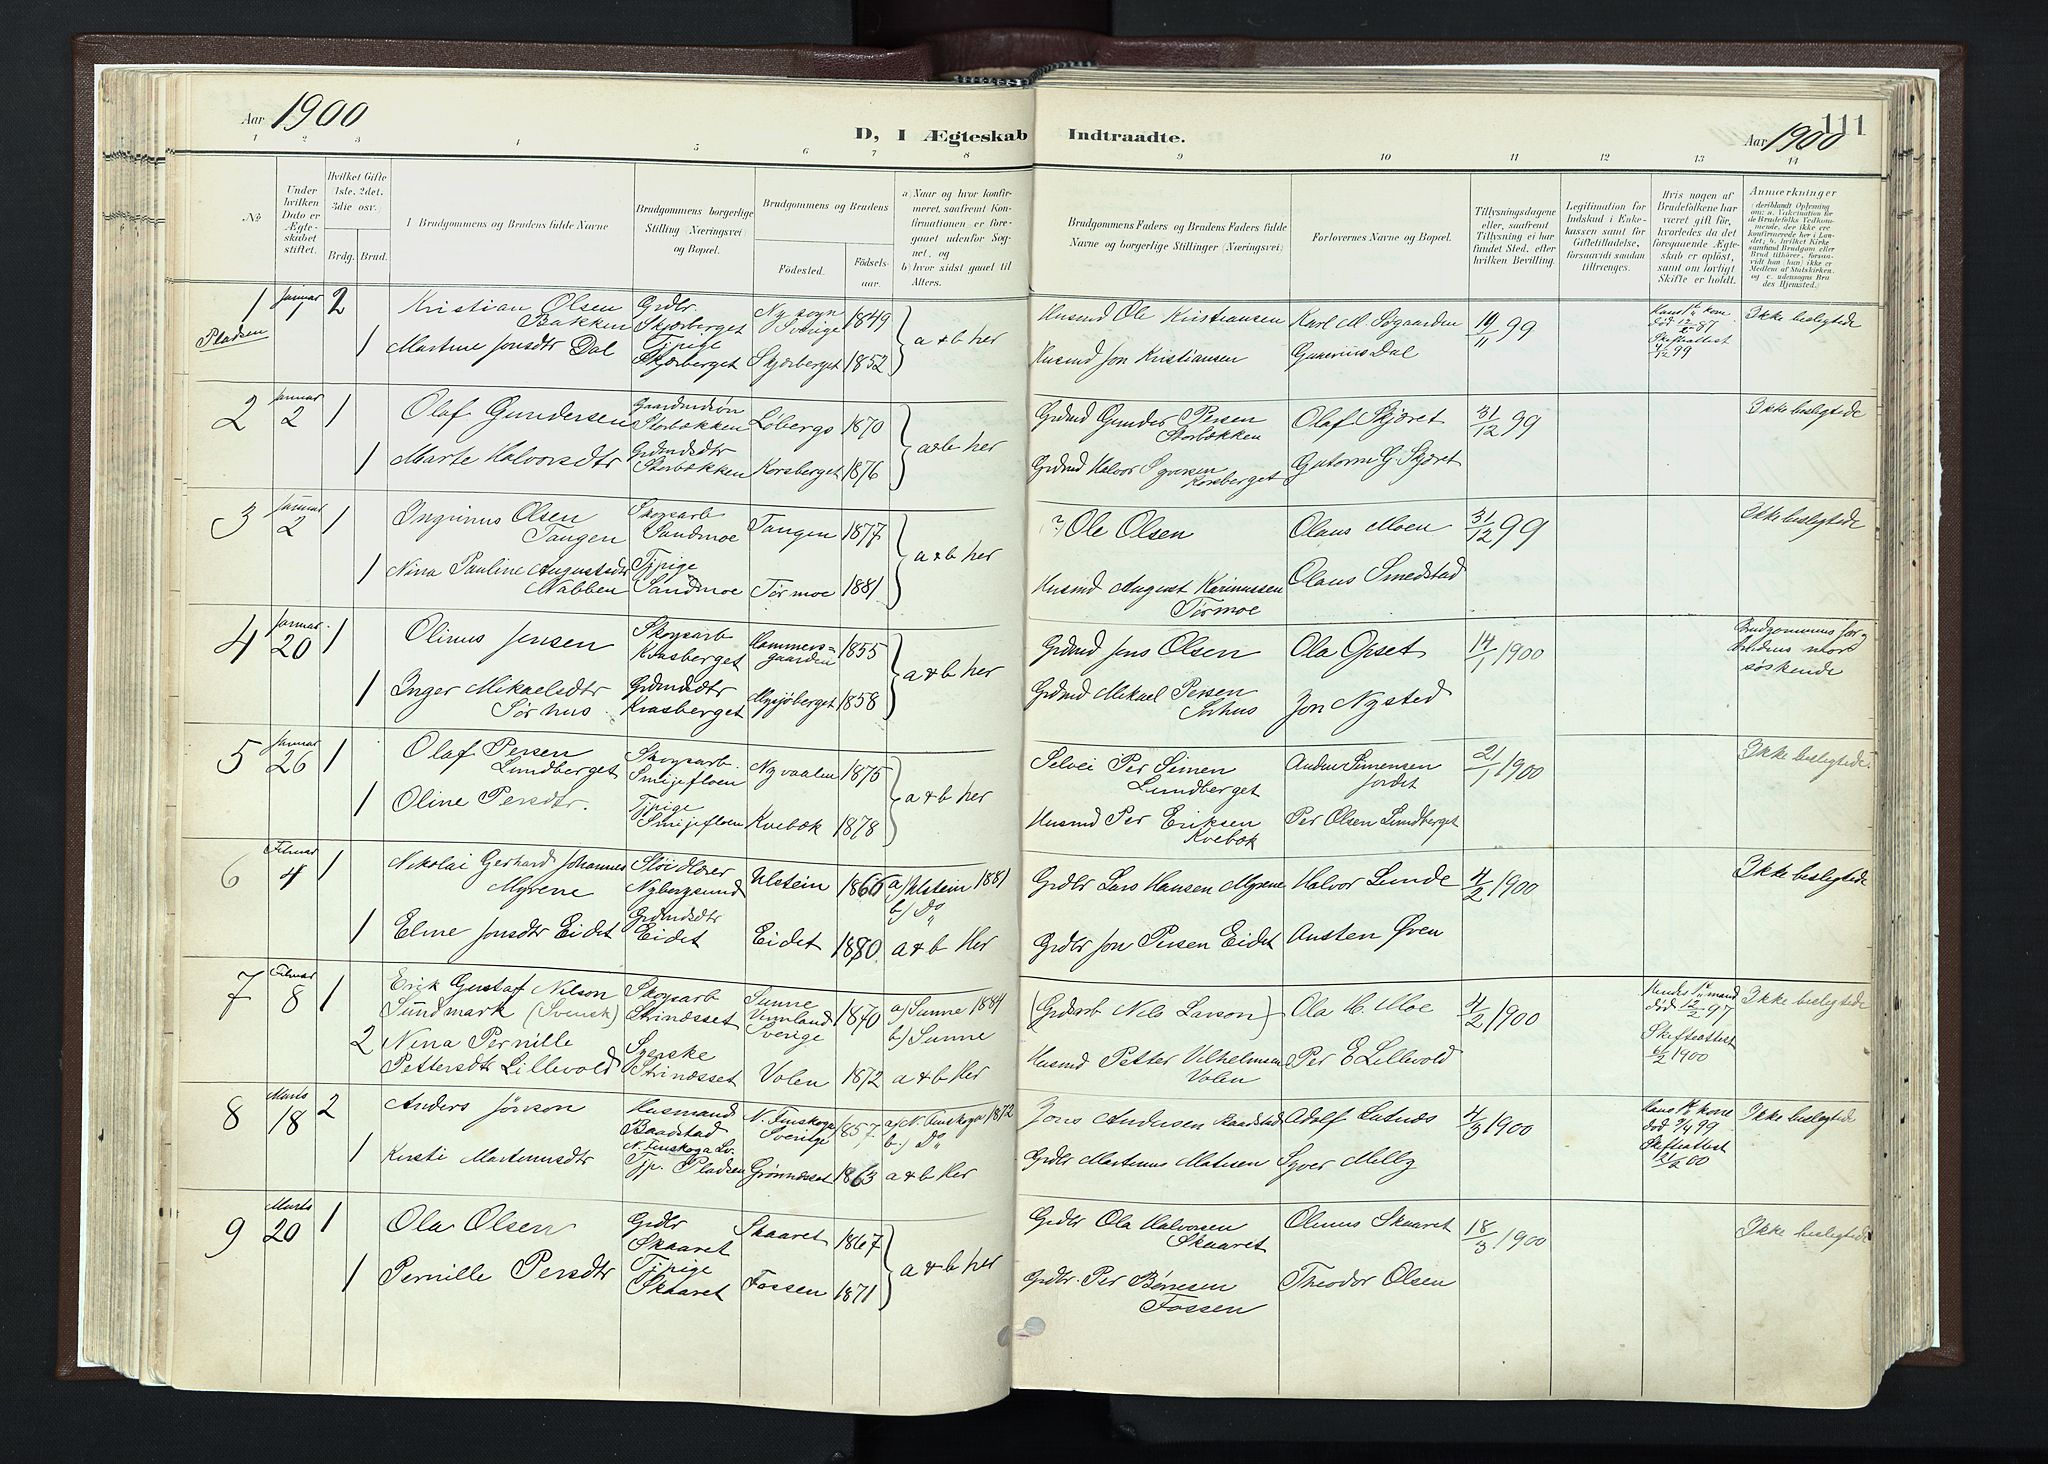 Aar 1900
D, I Ægteskab Indtraadte.
Aar 1900
111
1 2 3 4 5 6 7 8 9 10 11 12 13 14
№
Under hvilken Dato er Ægteskabet stiftet.
Hvilket Gifte (1ste, 2det, 3die osv.)
Brdg. Brud.
I Brudgommens og Brudens fulde Navne
Brudgommens borgerlige Stilling (Næringsvei) og Bopæl.
Brudgommens og Brudens
Fødested.
Fødselsaar.
a) Naar og hvor konfirmeret, saafremt Konfirmationen er foregaaet udenfor Sognet, og
b) hvor sidst gaaet til Alters.
Brudgommens Faders og Brudens Faders fulde Navne og borgerlige Stillinger (Næringsvei)
Forlovernes Navne og Bopæl.
Tillysningsdagene eller, saafremt Tillysning ei har fundet Sted, efter hvilken Bevilling.
Legitimation for Indskud i Enkekassen samt for Giftetilladelse, forsaavidt saadan tiltrænges.
Hvis nogen af Brudefolkene har været gift før, hvorledes da det foregaaende Ægteskab er opløst, samt om lovligt Skifte er holdt.
Anmærkninger
1 Januar 1 2 Kristian Olsen Bakken Grdbr. Skjærberget Ny sogn Sverige 1849 a & b her Husmd Ole Kristiansen Karl M Søgaarden 19/11 99 Hans 1ste kone død 12/5 87 Skifteattest 4/12 99 Ikke beslegtede
Pladsen
1 Martine Jonsdtr Dal Tjpige Skjærberget Skjærberget 1852 Husmd Jon Kristiansen Gunerius Dal
2 Januar 2 1 Olaf Gundersen Gaardmdsøn Storbækken Løbergs 1870 a & b her Grdmd Gunder Persen Storbækken Olaf Skjæret 31/12 99 Ikke beslegtede
1 Marte Halvorsdtr Grdmdsdtr Storbækken Korsberget 1876 Grdmd Halvor Syversen Korsberget Gutorm G. Skjæret
3 Januar 2 1 Ingrinus Olsen Tangen Skogsarb Sandmoe Tangen 1877 a & b her ? Ole Olsen Olaus Moen 31/12 99 Ikke beslegtede
1 Nina Pauline Augustsdtr Nabben Tjpige Sandmoe Tørmoe 1881 Husmd August Karinussen Tørmoe Olaus Smedstad
4 Januar 20 1 Olinus Jensen Skogsarb Knasberget Hammersgaarden 1855 a & b her Grdmd Jens Olsen Ola Opset 14/1 1900 Brudgommens far, Brudens mor søskende
1 Inger Mikaelsdtr Sørhus. Grdmdsdtr Knasberget Mysjøberget 1858 Grdmd Mikael Persen Sørhus Jon Nysted
5 Januar 26 1 Olaf Persen Lundberget Skogsarb. Smijefloen Nyvaalen 1875 a & b her Selvei Per Simen Lundberget Anders Simensen Jordet 21/1 1900 Ikke beslegtede
1 Oline Persdtr. Tjpige Smijefloen Kvebæk 1878 Husmd Per Eriksen Kvebæk Per Olsen Lundberget
6 Februar 4 1 Nikolai Gerhard Johannes Myrene Sløidlærer Nybergsund Utstein 1866 a) Utstein 1881 b) Do Grdbr Lars Hansen Myrene Halvor Lunde 4/2 1900 Ikke beslegtede
1 Eline Jonsdtr Eidet Grdmdsdtr Eidet Eidet 1880 a & b Her Grdbr Jon Persen Eidet Austen Øren
7 Februar 8 1 Erik Gustaf Nilson Sundmark (Svensk) Skogsarb Strinæsset Sunne Vermland Sverige 1870 a) Sunne 1884 b) Sunne (Grdarb Nils Larson) Ola H. Moe 4/2 1900 Hendes 1ste mand død 12/2 97 Skifteattest 2/2 1900 Ikke beslegtede
2 Nina Pernille Pettersdtr Lillevold Syerske Strinæsset Volen 1872 a & b Her Husmd Petter Vilhelmsen Volen Per E Lillevold
8 Marts 18 2 Anders Jonson Husmand Baadstad N. Finskoga Sv. N. Finskoga Sverige 1857 a) N. Finskoga 1872 b) Do Jons Andersen Baadstad Adolf Lutnæs 4/3 1900 Hans 1ste kone død 7/4 99 Skifteattest 21/2 00 Ikke beslegtede
1 Kirsti Martinusdtr Tjp. Pladsen Grønnæsset 1863 a & b Her Grdbr Martinus Matisen Syver Melby
9 Marts 20 1 Ola Olsen Grdbr Skaaret Skaaret 1867 a & b her Grdbr Ola Halvorsen Skaaret Olinus Skaaret 18/3 1900 Ikke beslegtede
1 Pernille Persdtr Tjpige Skaaret Fossen 1871 Grdbr. Per Børresen Fossen Theodor Olsen